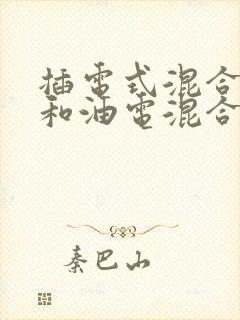 插電式混合
和油電混合
秦巴山